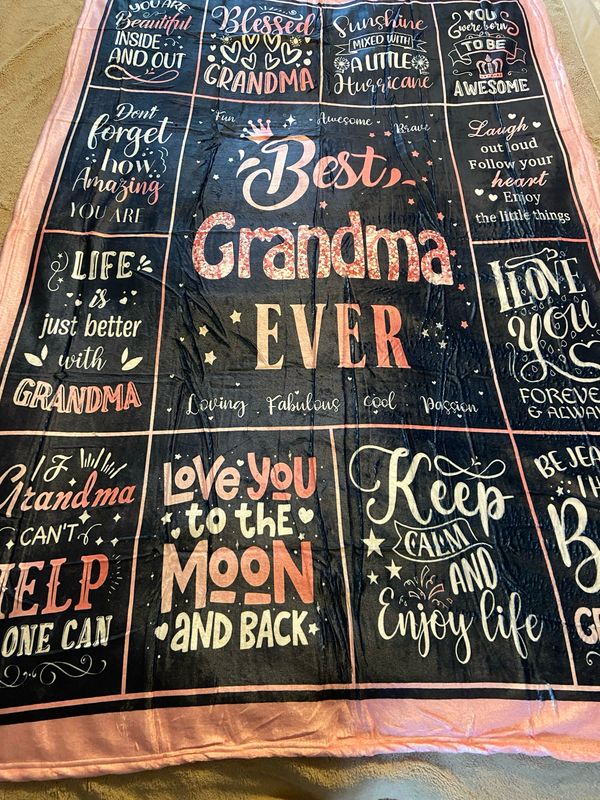 YOU ARE
Beautiful
INSIDE
AND OUT
Blessed
GRANDMA
Sunshine
MIXED WITH
A LITTLE
Hurricane
YOU
were born
TO BE
AWESOME
Don't
forget
how
Amazing
YOU ARE
Fun Awesome Brave
Best
Grandma
EVER
Loving Fabulous Cool Passion
Laugh
out loud
Follow your
heart
Enjoy
the little things
LIFE
is
just better
with
GRANDMA
I LOVE
YOU
FOREVE
& ALWA
IF
Grandma
CAN'T
HELP
ONE CAN
LOVE YOU
to the
MOON
AND BACK
Keep
CALM
AND
Enjoy life
BE JEA
I H
B
G